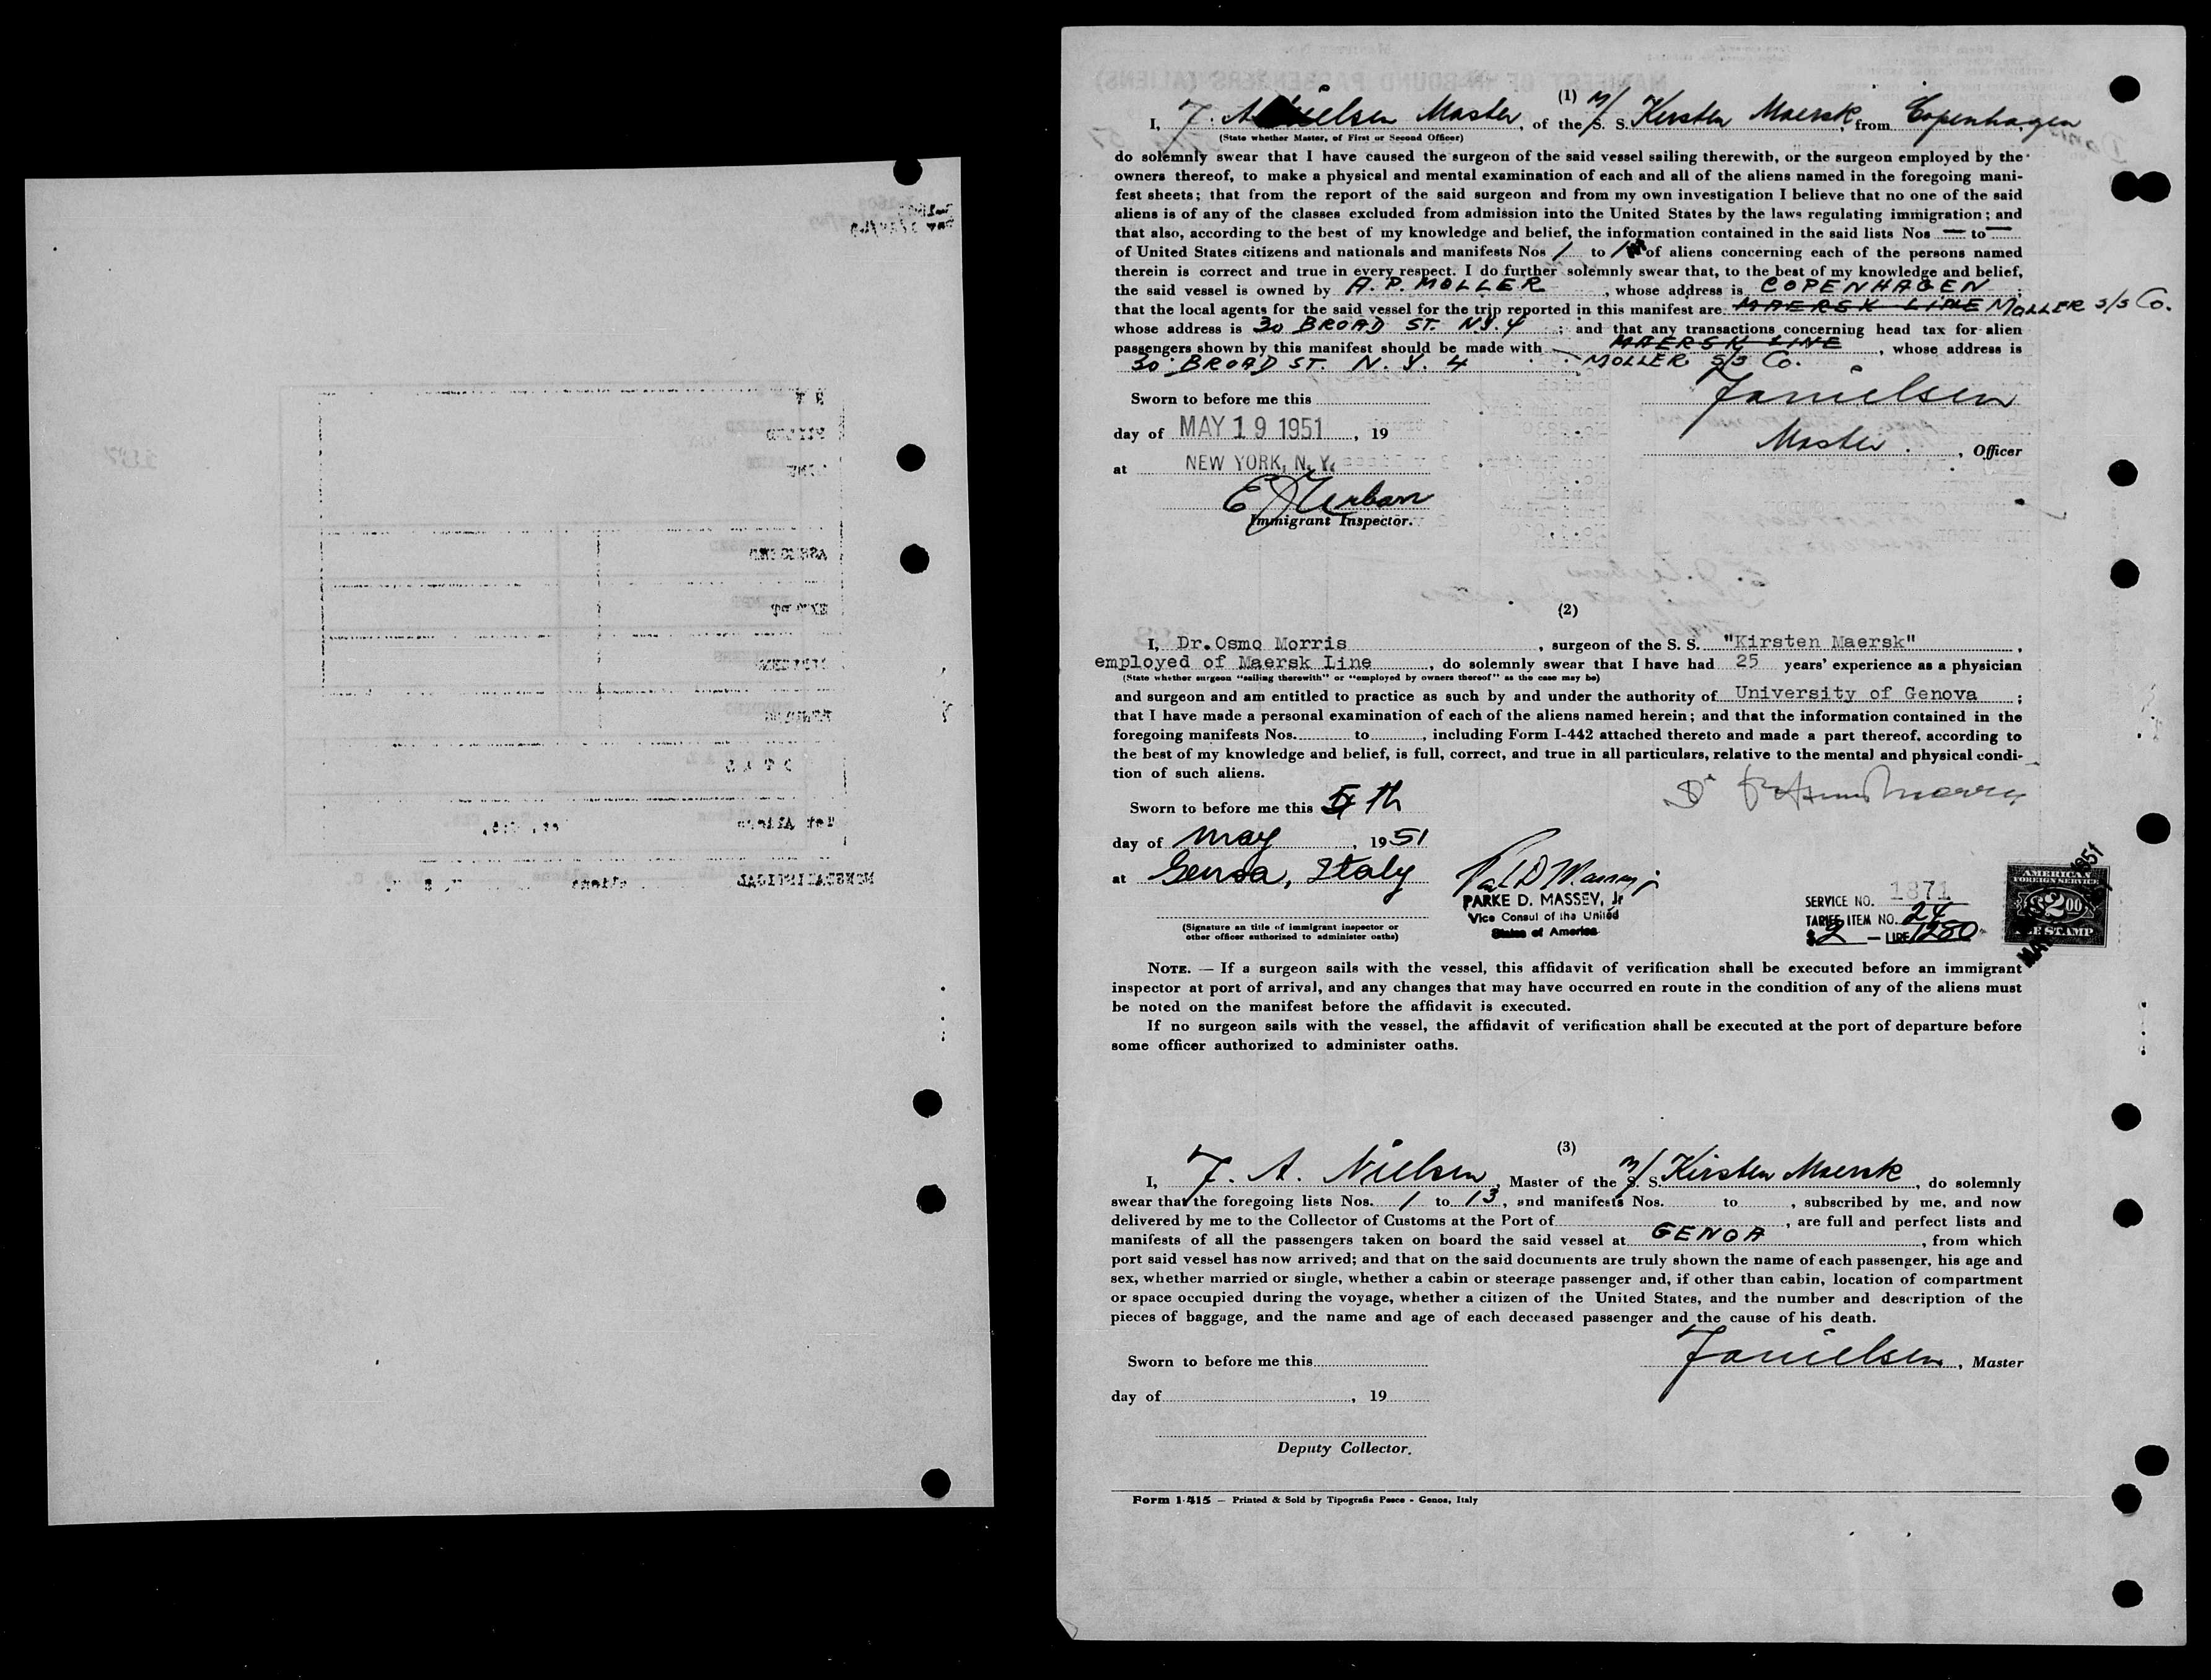 (1)
I, F. A. Nielsen Master, of the M/S. S. Kirsten Maersk, from Copenhagen
(State whether Master, of First or Second Officer)
do solemnly swear that I have caused the surgeon of the said vessel sailing therewith, or the surgeon employed by the
owners thereof, to make a physical and mental examination of each and all of the aliens named in the foregoing mani-
fest sheets; that from the report of the said surgeon and from my own investigation I believe that no one of the said
aliens is of any of the classes excluded from admission into the United States by the laws regulating immigration; and
that also, according to the best of my knowledge and belief, the information contained in the said lists Nos — to —
of United States citizens and nationals and manifests Nos 1 to 1 of aliens concerning each of the persons named
therein is correct and true in every respect. I do further solemnly swear that, to the best of my knowledge and belief,
the said vessel is owned by A. P. MOLLER, whose address is COPENHAGEN;
that the local agents for the said vessel for the trip reported in this manifest are MAERSK LINE MOLLER S/S Co.
whose address is 30 BROAD ST. N.Y. 4; and that any transactions concerning head tax for alien
passengers shown by this manifest should be made with MAERSK LINE, whose address is
30 BROAD ST. N. Y. 4 MOLLER S/S Co.
Sworn to before me this
F A Nielsen
day of MAY 19 1951, 19
Master, Officer
at NEW YORK, N. Y.
E J Urban
Immigrant Inspector.
(2)
I, Dr. Osmo Morris, surgeon of the S. S. "Kirsten Maersk",
employed of Maersk Line, do solemnly swear that I have had 25 years' experience as a physician
(State whether surgeon "sailing therewith" or "employed by owners thereof" as the case may be)
and surgeon and am entitled to practice as such by and under the authority of University of Genova;
that I have made a personal examination of each of the aliens named herein; and that the information contained in the
foregoing manifests Nos. to, including Form I-442 attached thereto and made a part thereof, according to
the best of my knowledge and belief, is full, correct, and true in all particulars, relative to the mental and physical condi-
tion of such aliens.
Sworn to before me this 5th
day of May, 1951
at Genoa, Italy
PARKE D. MASSEY, Jr
Vice Consul of the United
States of America
(Signature an title of immigrant inspector or
other officer authorized to administer oaths)
SERVICE NO. 1871
TARIFF ITEM NO. 24
$2 — LIRE 1250
AMERICAN
FOREIGN SERVICE
$2.00
FEE STAMP
NOTE. — If a surgeon sails with the vessel, this affidavit of verification shall be executed before an immigrant
inspector at port of arrival, and any changes that may have occurred en route in the condition of any of the aliens must
be noted on the manifest before the affidavit is executed.
If no surgeon sails with the vessel, the affidavit of verification shall be executed at the port of departure before
some officer authorized to administer oaths.
(3)
I, F. A. Nielsen, Master of the M/S. S. Kirsten Maersk, do solemnly
swear that the foregoing lists Nos. 1 to 13, and manifests Nos. to, subscribed by me, and now
delivered by me to the Collector of Customs at the Port of, are full and perfect lists and
manifests of all the passengers taken on board the said vessel at GENOA, from which
port said vessel has now arrived; and that on the said documents are truly shown the name of each passenger, his age and
sex, whether married or single, whether a cabin or steerage passenger and, if other than cabin, location of compartment
or space occupied during the voyage, whether a citizen of the United States, and the number and description of the
pieces of baggage, and the name and age of each deceased passenger and the cause of his death.
Sworn to before me this
F A Nielsen, Master
day of, 19
Deputy Collector.
Form I-415 — Printed & Sold by Tipografia Pesce - Genoa, Italy